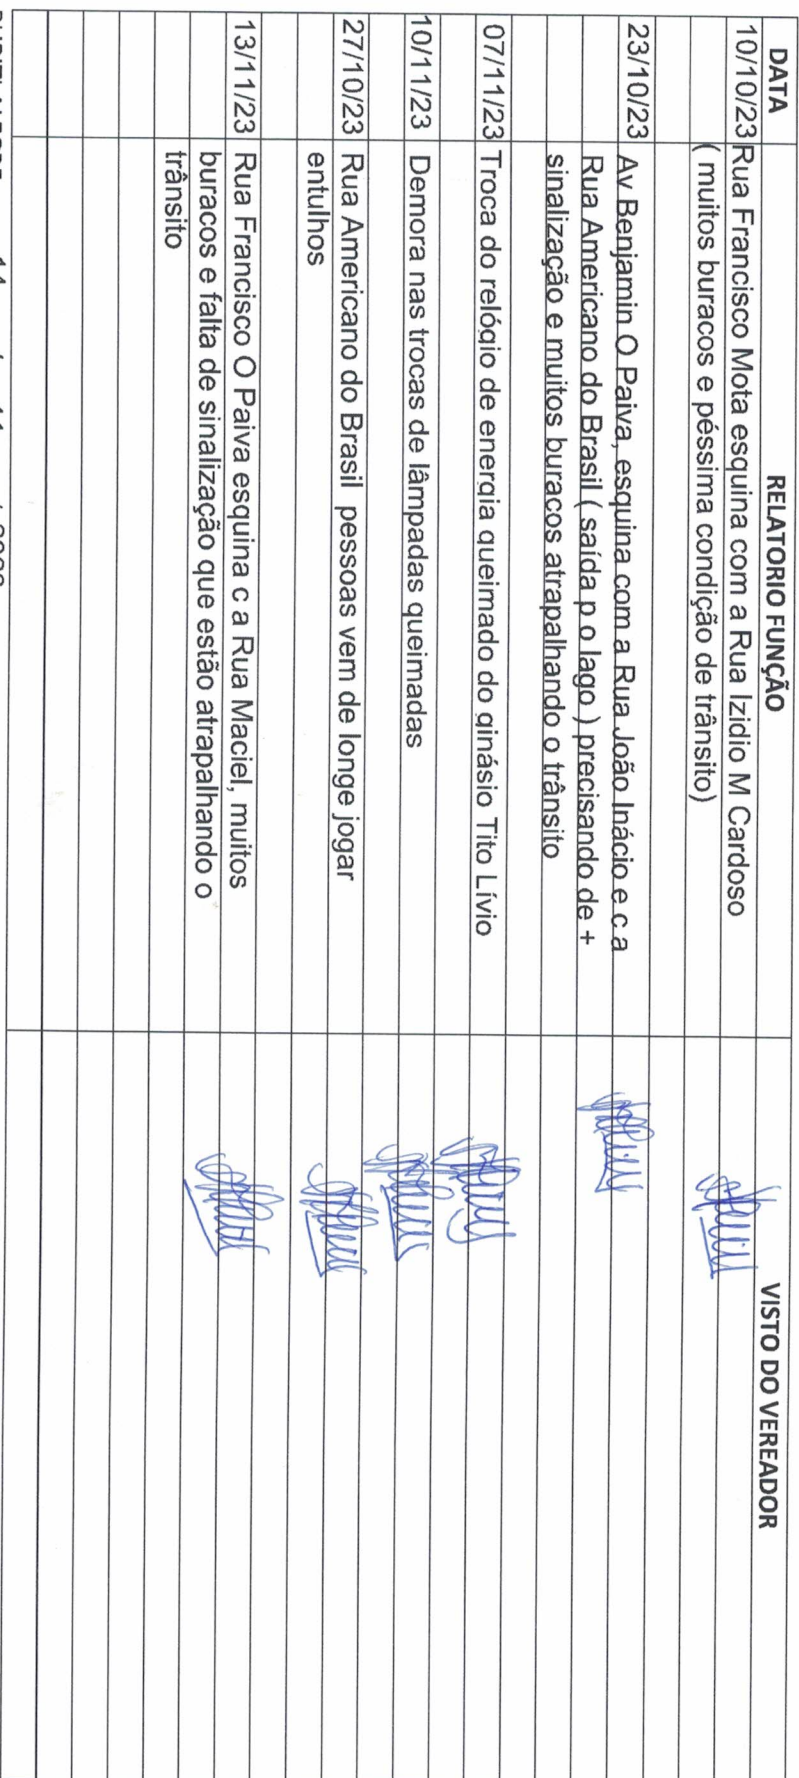 DATA RELATORIO FUNÇÃO VISTO DO VEREADOR
10/10/23 Rua Francisco Mota esquina com a Rua Izidio M Cardoso
( muitos buracos e péssima condição de trânsito)
23/10/23 Av Benjamin O Paiva, esquina com a Rua João Inácio e c a
Rua Americano do Brasil ( saída p o lago ) precisando de +
sinalização e muitos buracos atrapalhando o trânsito
07/11/23 Troca do relógio de energia queimado do ginásio Tito Lívio
10/11/23 Demora nas trocas de lâmpadas queimadas
27/10/23 Rua Americano do Brasil pessoas vem de longe jogar
entulhos
13/11/23 Rua Francisco O Paiva esquina c a Rua Maciel, muitos
buracos e falta de sinalização que estão atrapalhando o
trânsito